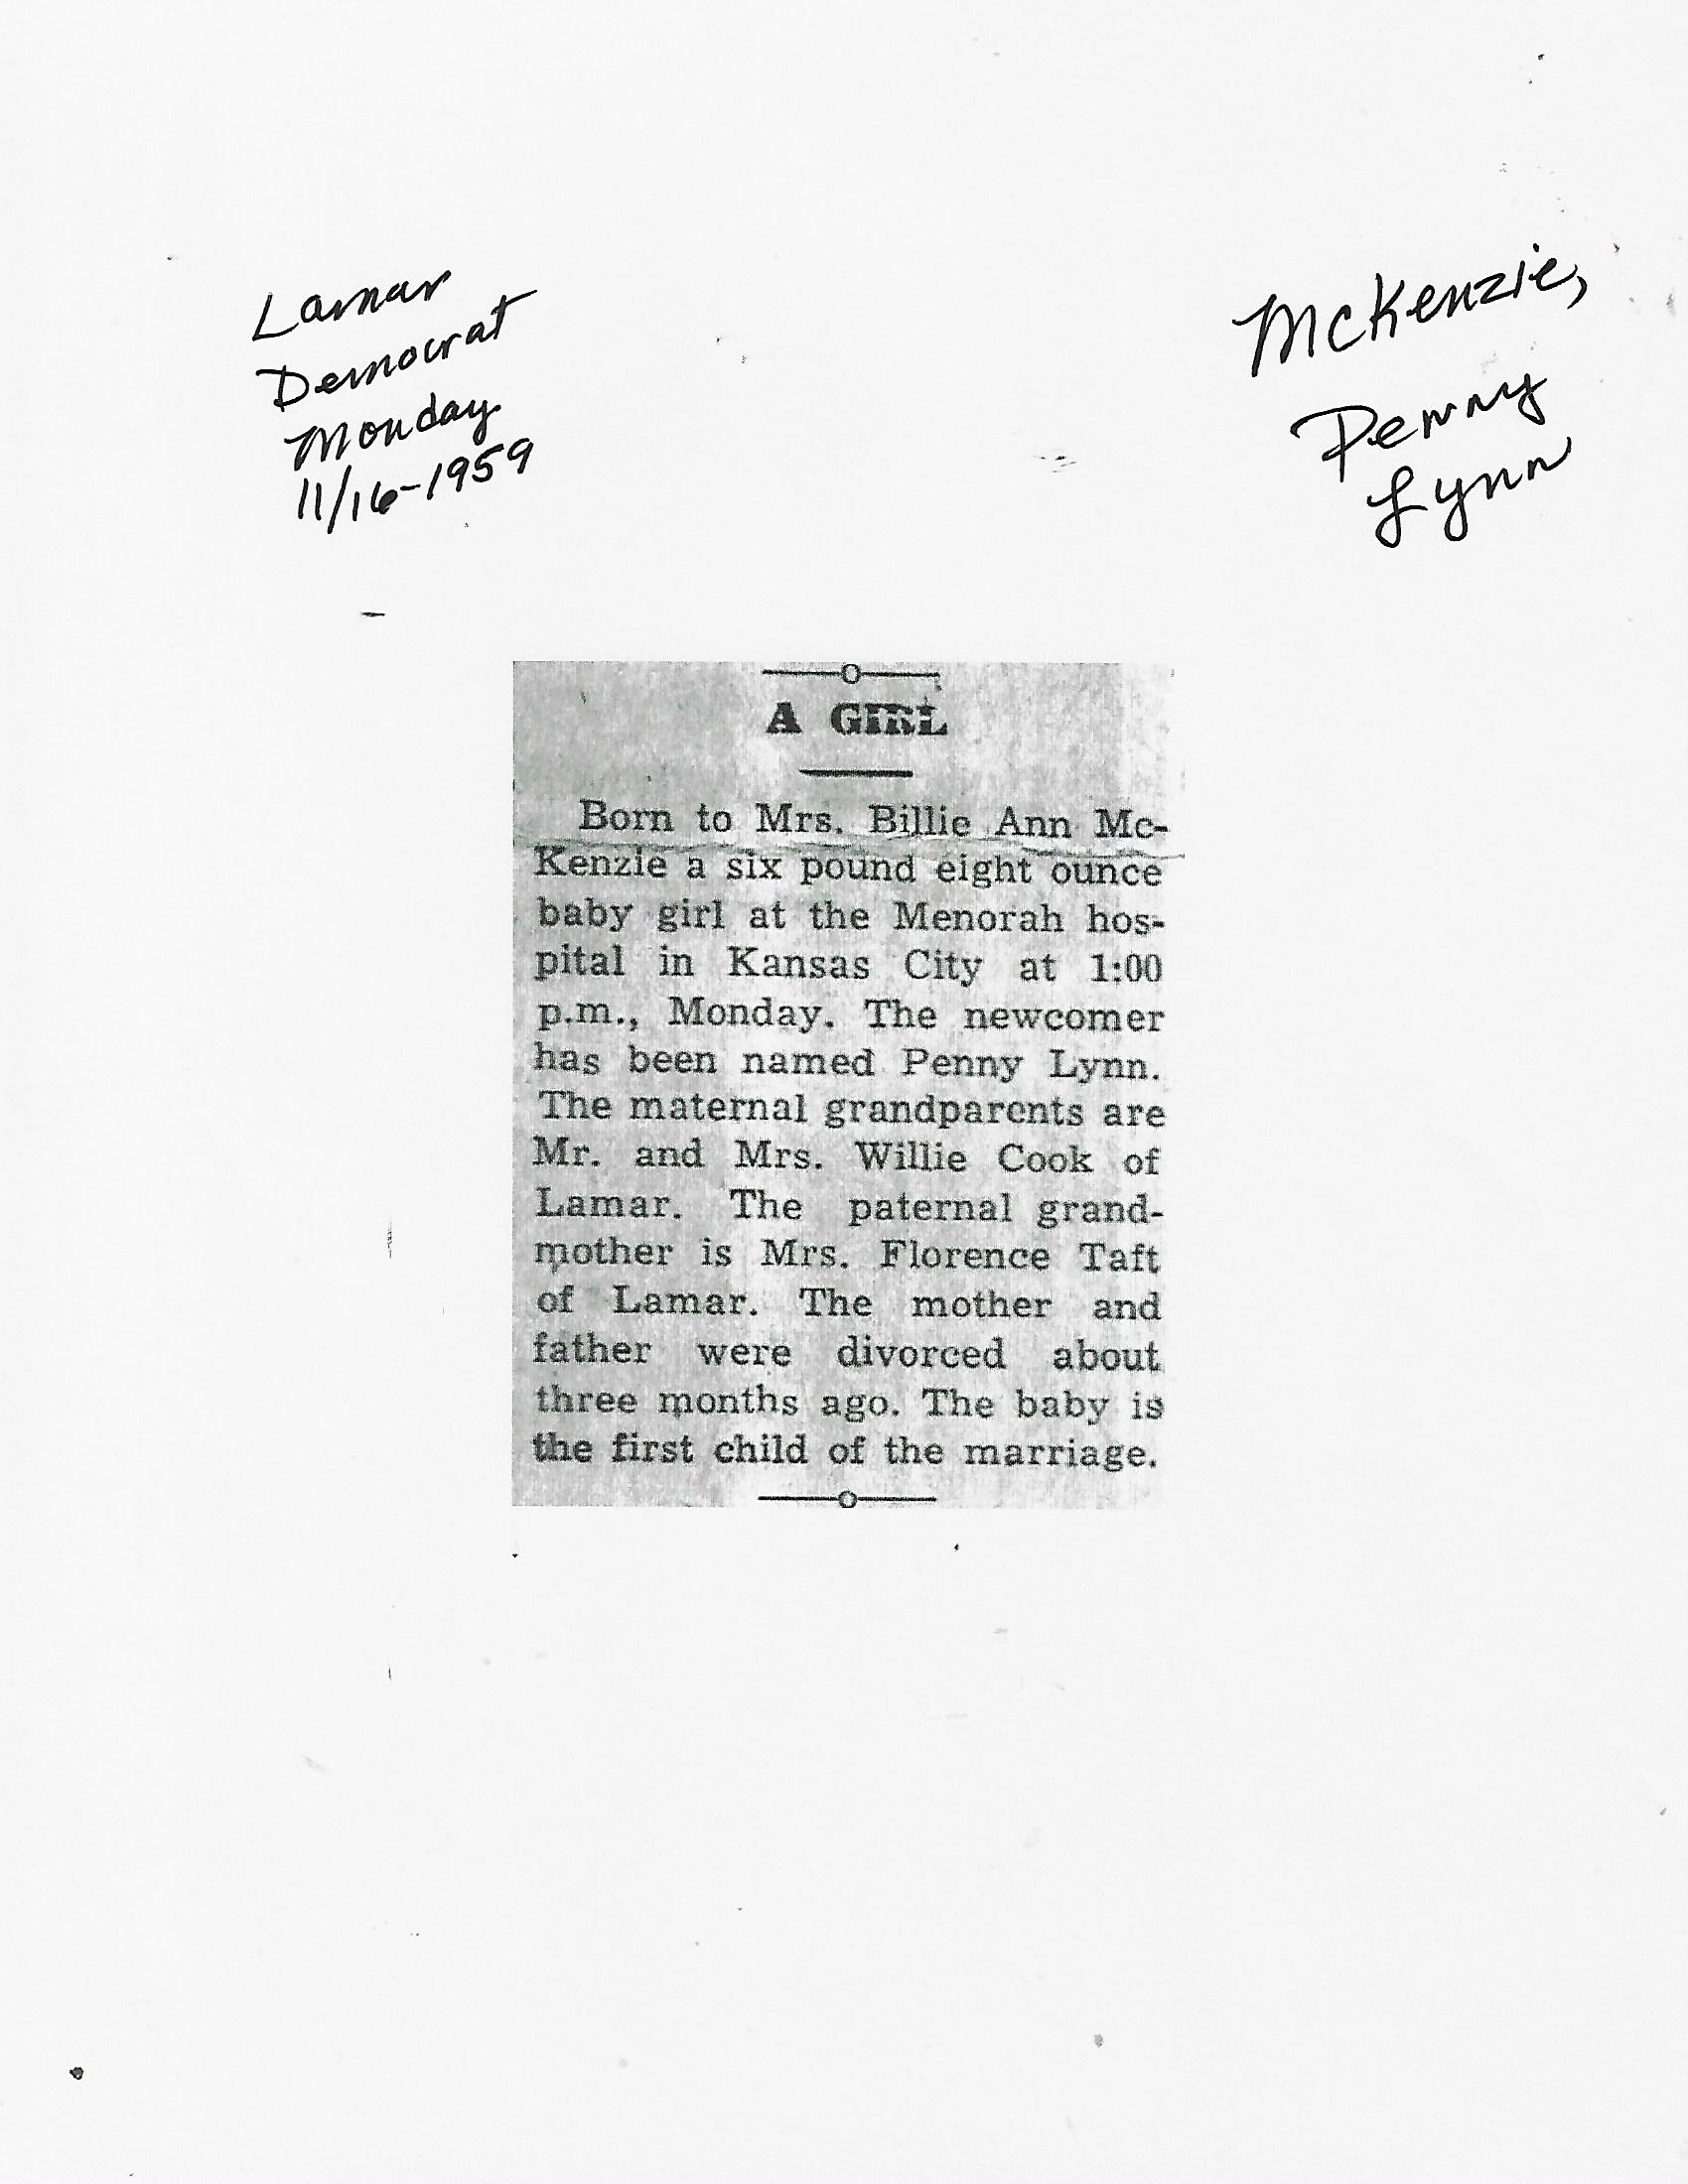 Lamar
Democrat
Monday
11/16-1959
McKenzie,
Penny
Lynn
A GIRL
Born to Mrs. Billie Ann Mc-
Kenzie a six pound eight ounce
baby girl at the Menorah hos-
pital in Kansas City at 1:00
p.m., Monday. The newcomer
has been named Penny Lynn.
The maternal grandparents are
Mr. and Mrs. Willie Cook of
Lamar. The paternal grand-
mother is Mrs. Florence Taft
of Lamar. The mother and
father were divorced about
three months ago. The baby is
the first child of the marriage.